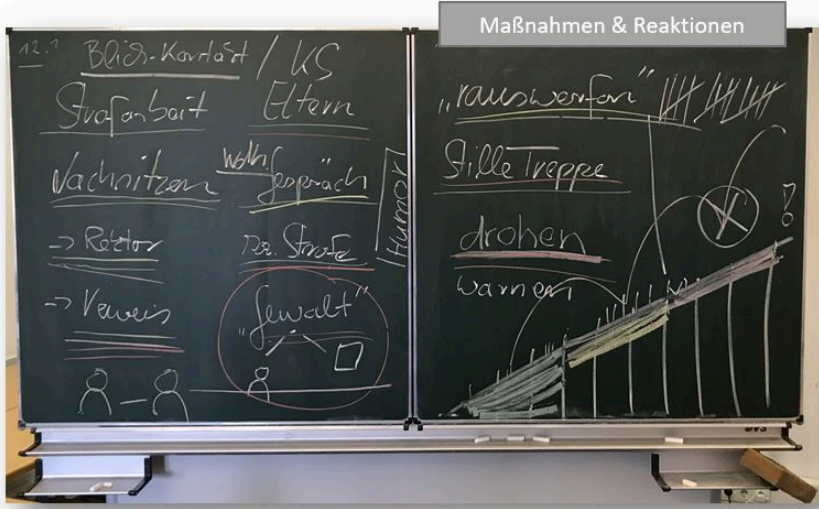 Maßnahmen & Reaktionen
12.1
Blick-Kontakt / KS
Strafarbeit
Eltern
Nachsitzen
Gespräch
Humor
-> Rektor
Strafe
-> Verweis
"Gewalt"
"rauswerfen"
Stille Treppe
drohen
warnen
!